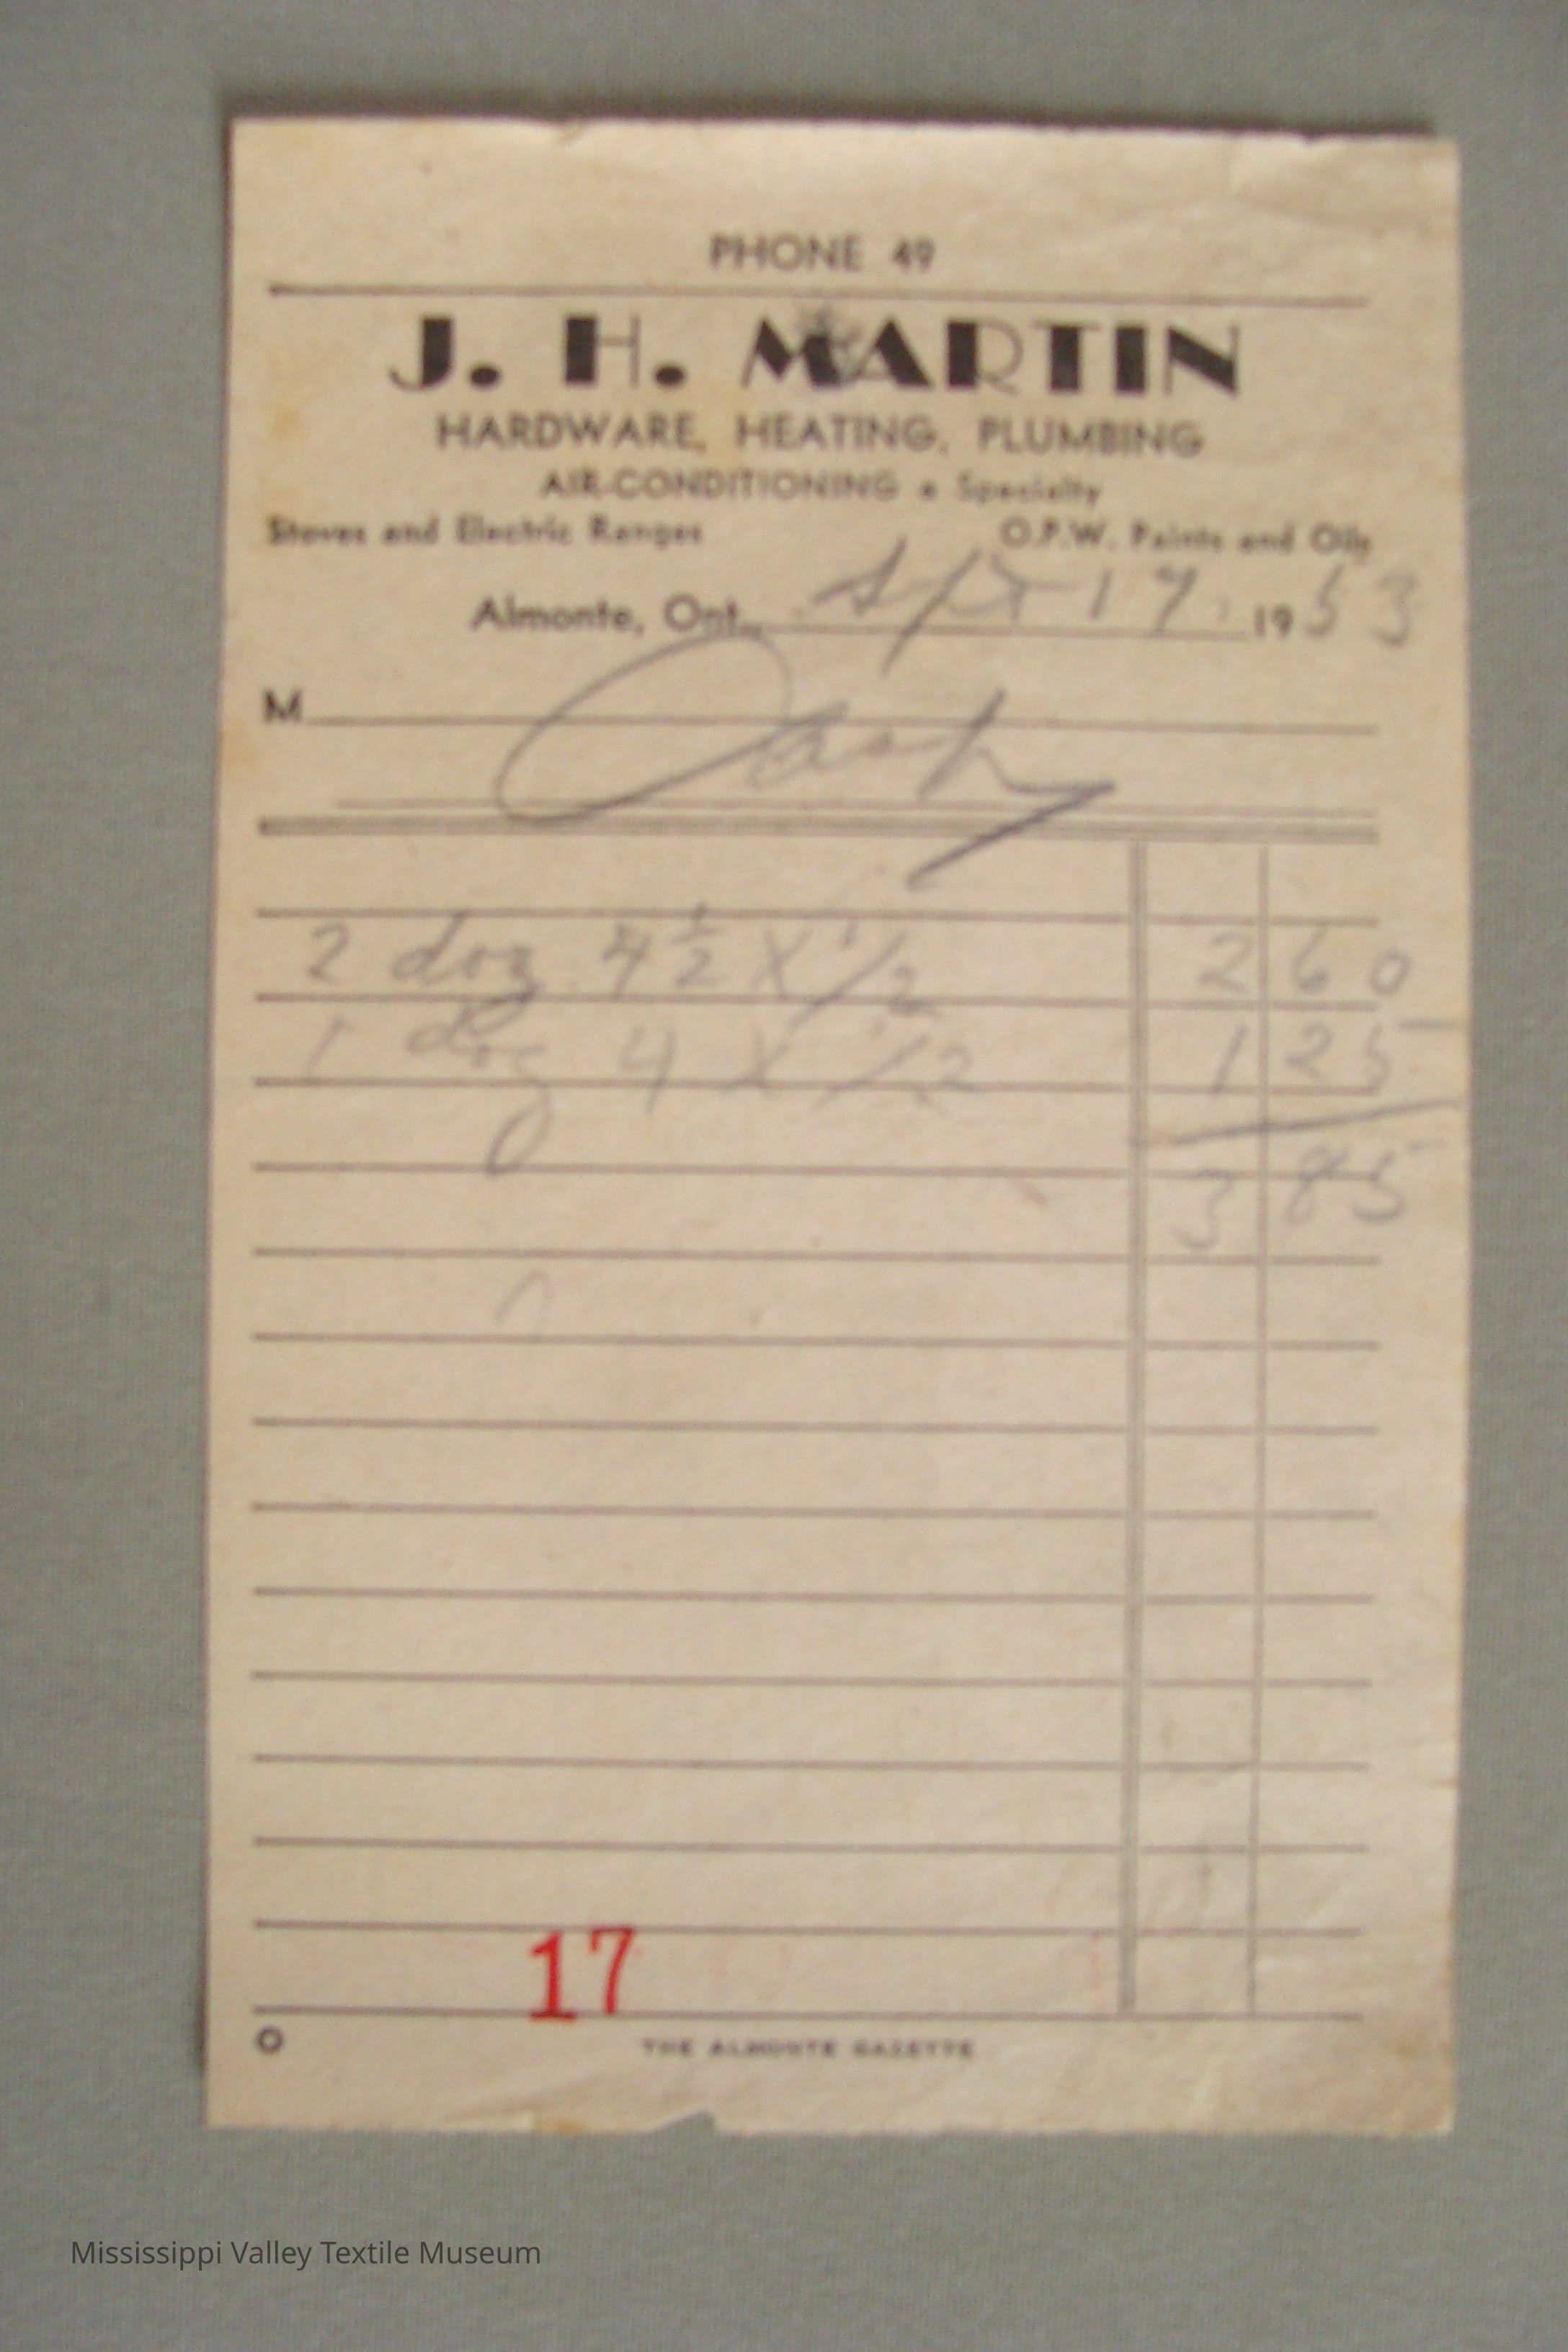 PHONE 49
J. H. MARTIN
HARDWARE, HEATING, PLUMBING
AIR-CONDITIONING a Specialty
Stoves and Electric Ranges O.P.W. Paints and Oils
Almonte, Ont. 17, 1953
M Cash
2 doz 4 1/2 X 1/2 2 60
1 doz 4 X 1/2 1 25
3 85
17
O THE ALMONTE GAZETTE
Mississippi Valley Textile Museum